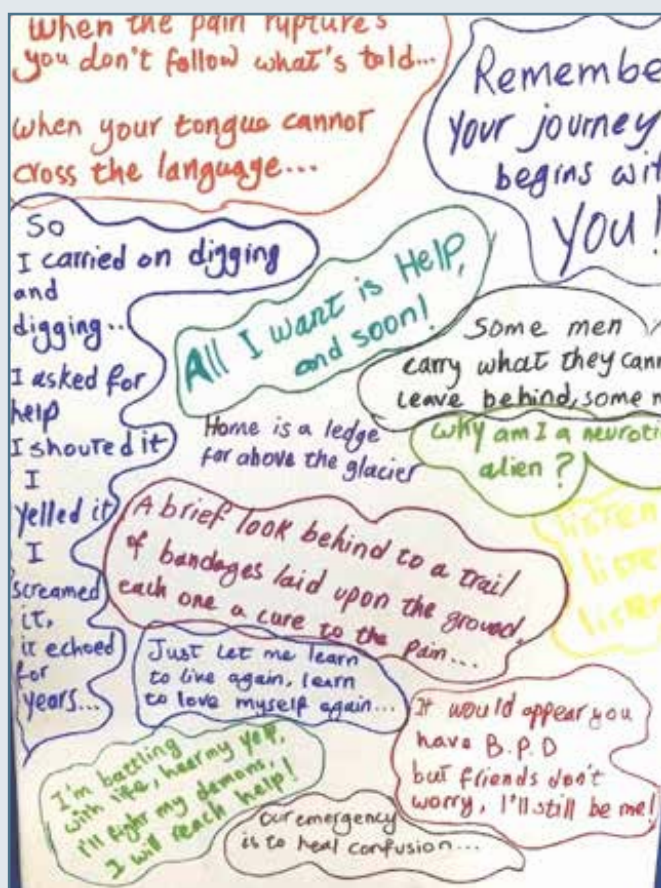 When the pain rupture's
you don't follow what's told...
when your tongue cannot
cross the language...
Remembe
your journey
begins wit
YOU!
So
I carried on digging
and
digging...
I asked for
help
I shouted it
I
yelled it
I
screamed
it,
it echoed
for
years...
All I want is Help,
and soon!
Some men
carry what they cann
leave behind, some m
Home is a ledge
far above the glacier
Why am I a neuroti
alien?
listen
liste
listen
A brief look behind to a trail
of bandages laid upon the ground,
each one a cure to the pain...
Just let me learn
to live again, learn
to love myself again...
It would appear you
have B.P.D
but friends don't
worry, I'll still be me!
I'm battling
with life, hear my yelp,
I'll fight my demons,
I will reach help!
Our emergency
is to heal confusion...